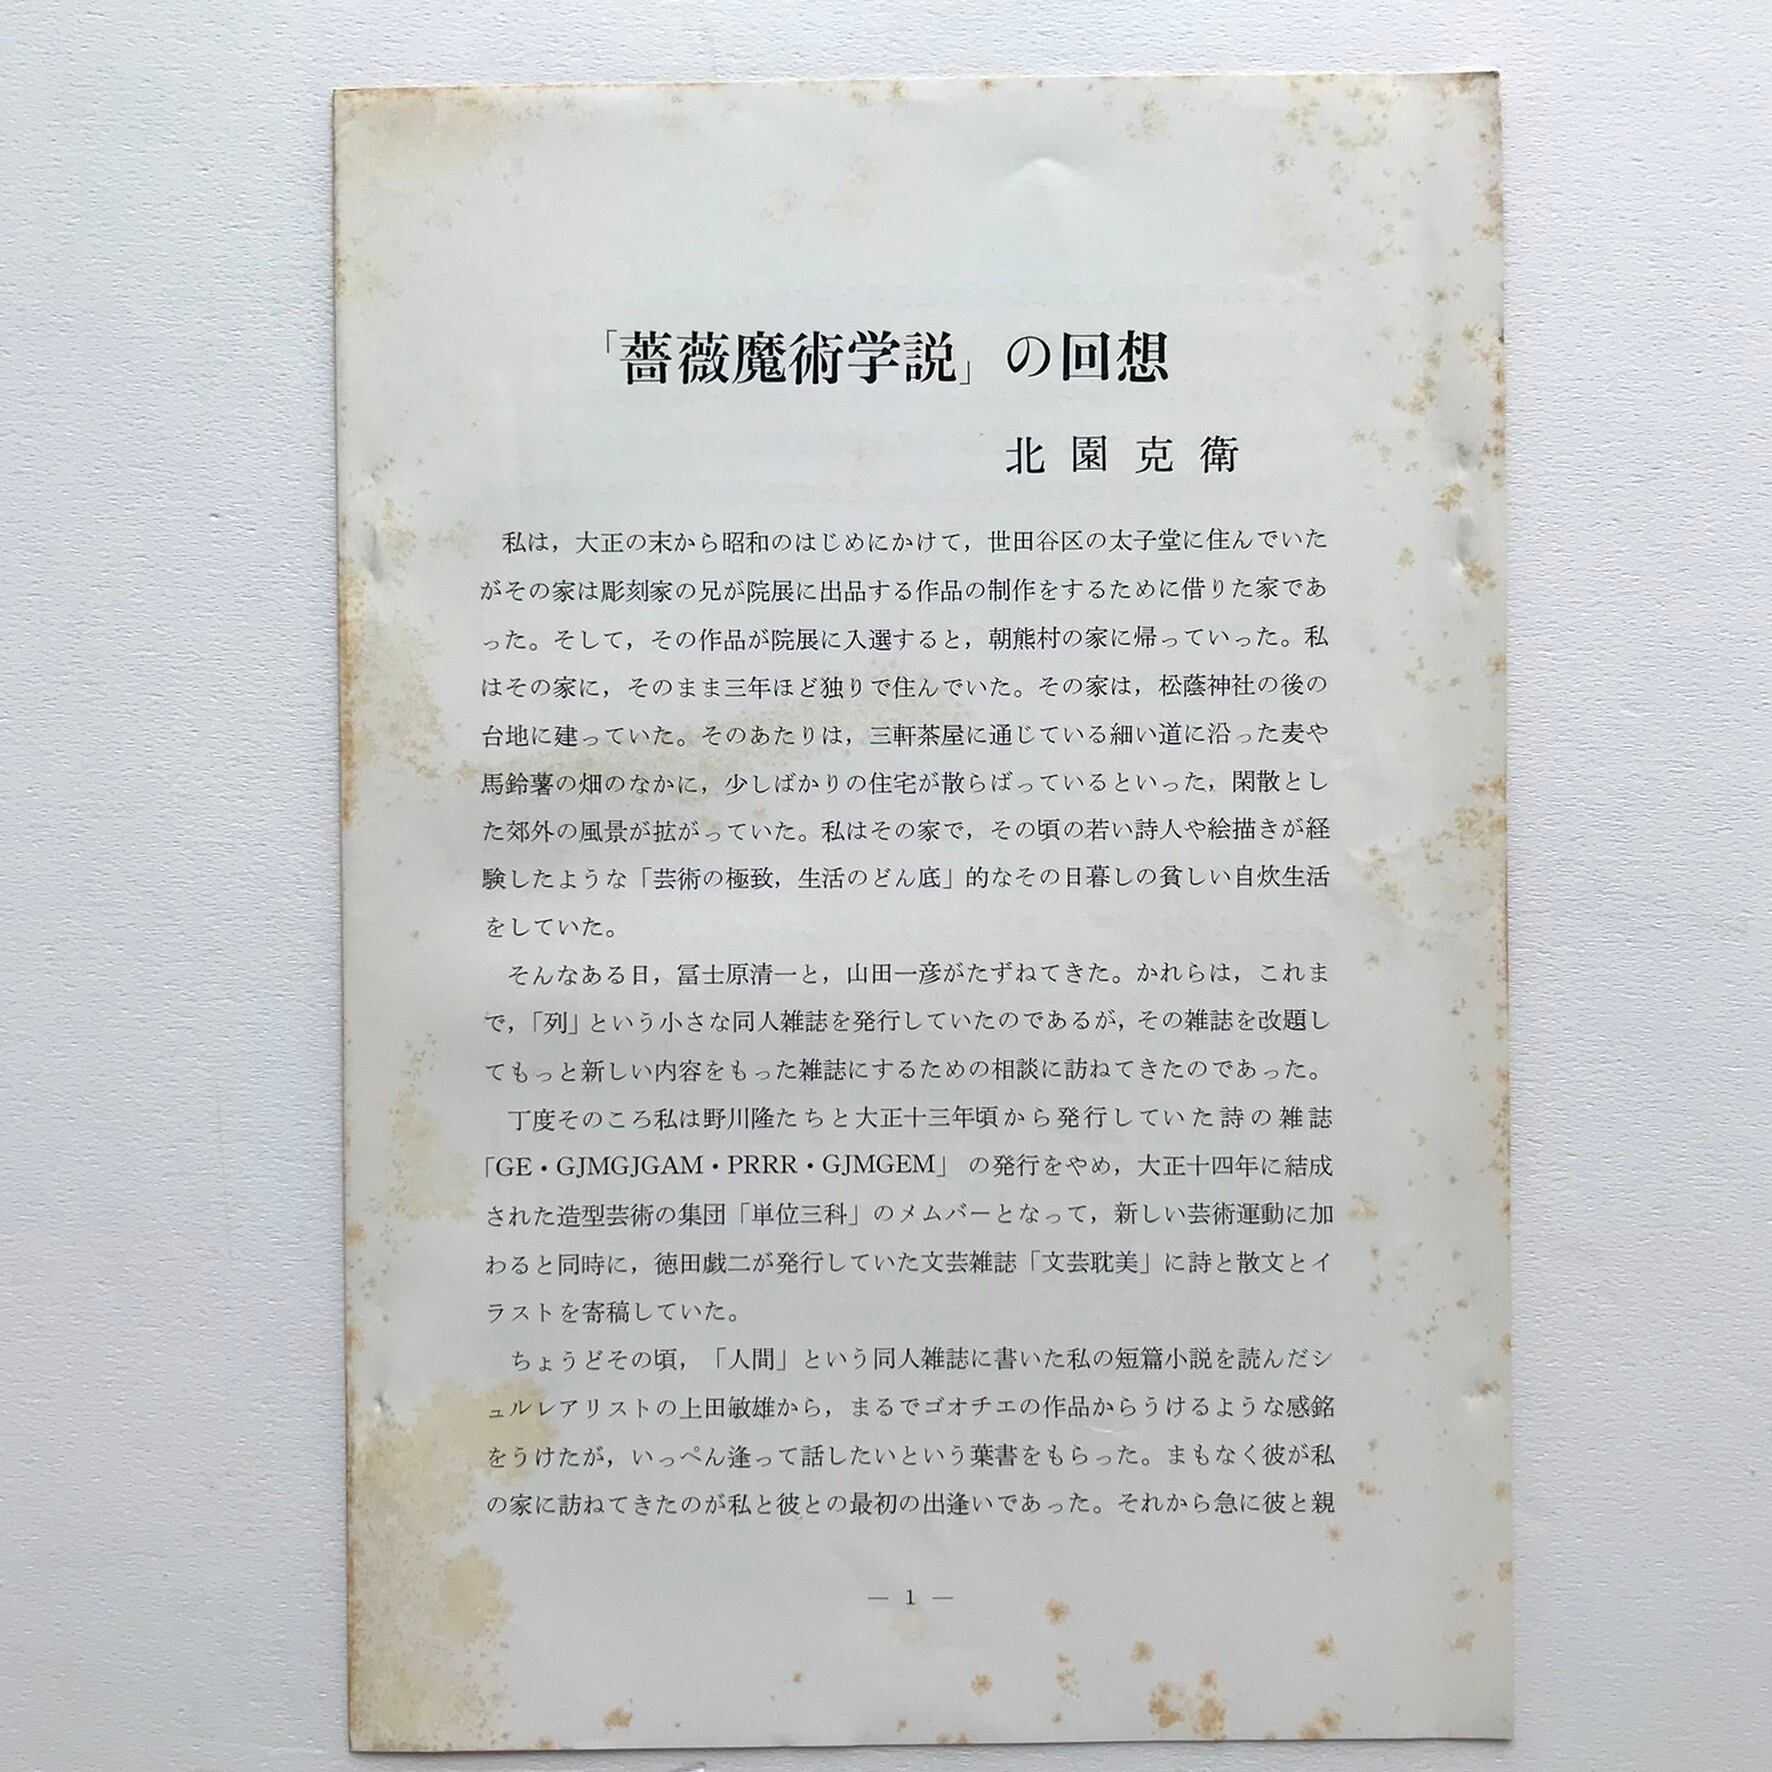 「薔薇魔術学説」の回想
北園克衛
私は，大正の末から昭和のはじめにかけて，世田谷区の太子堂に住んでいた
がその家は彫刻家の兄が院展に出品する作品の制作をするために借りた家であ
った。そして，その作品が院展に入選すると，朝熊村の家に帰っていった。私
はその家に，そのまま三年ほど独りで住んでいた。その家は，松蔭神社の後の
台地に建っていた。そのあたりは，三軒茶屋に通じている細い道に沿った麦や
馬鈴薯の畑のなかに，少しばかりの住宅が散らばっているといった，閑散とし
た郊外の風景が拡がっていた。私はその家で，その頃の若い詩人や絵描きが経
験したような「芸術の極致，生活のどん底」的なその日暮しの貧しい自炊生活
をしていた。
そんなある日，冨士原清一と，山田一彦がたずねてきた。かれらは，これま
で，「列」という小さな同人雑誌を発行していたのであるが，その雑誌を改題し
てもっと新しい内容をもった雑誌にするための相談に訪ねてきたのであった。
丁度そのころ私は野川隆たちと大正十三年頃から発行していた詩の雑誌
「GE・GJMGJGAM・PRRR・GJMGEM」の発行をやめ，大正十四年に結成
された造型芸術の集団「単位三科」のメムバーとなって，新しい芸術運動に加
わると同時に，徳田戯二が発行していた文芸雑誌「文芸耽美」に詩と散文とイ
ラストを寄稿していた。
ちょうどその頃，「人間」という同人雑誌に書いた私の短篇小説を読んだシ
ュルレアリストの上田敏雄から，まるでゴオチエの作品からうけるような感銘
をうけたが，いっぺん逢って話したいという葉書をもらった。まもなく彼が私
の家に訪ねてきたのが私と彼との最初の出逢いであった。それから急に彼と親
— 1 —